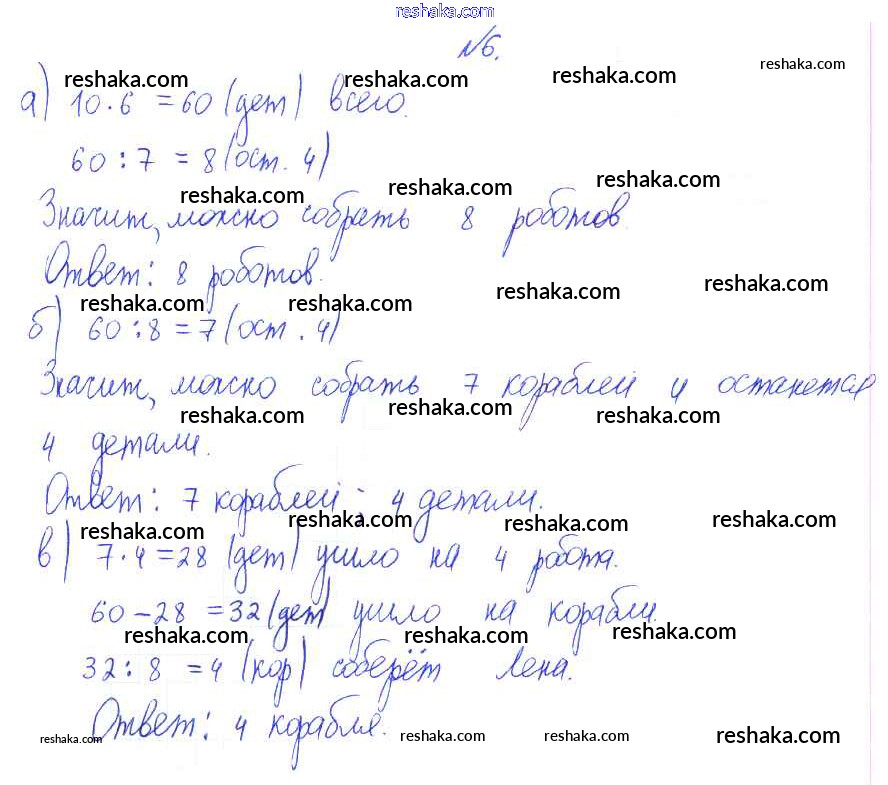 reshaka.com
№6.
reshaka.com reshaka.com reshaka.com reshaka.com
а) 10·6 =60 (дет) всего.
60 : 7 = 8 (ост. 4)
reshaka.com reshaka.com reshaka.com
Значит, можно собрать 8 роботов.
Ответ: 8 роботов.
reshaka.com reshaka.com reshaka.com reshaka.com
б) 60 :8 =7 (ост. 4)
Значит, можно собрать 7 кораблей и останется
reshaka.com reshaka.com reshaka.com
4 детали.
Ответ: 7 кораблей; 4 детали.
reshaka.com reshaka.com reshaka.com reshaka.com
в) 7·4=28 (дет) ушло на 4 робота.
60-28 =32 (дет) ушло на корабли.
reshaka.com reshaka.com reshaka.com
32: 8 =4 (кор) соберёт Лена.
Ответ: 4 корабля.
reshaka.com reshaka.com reshaka.com reshaka.com